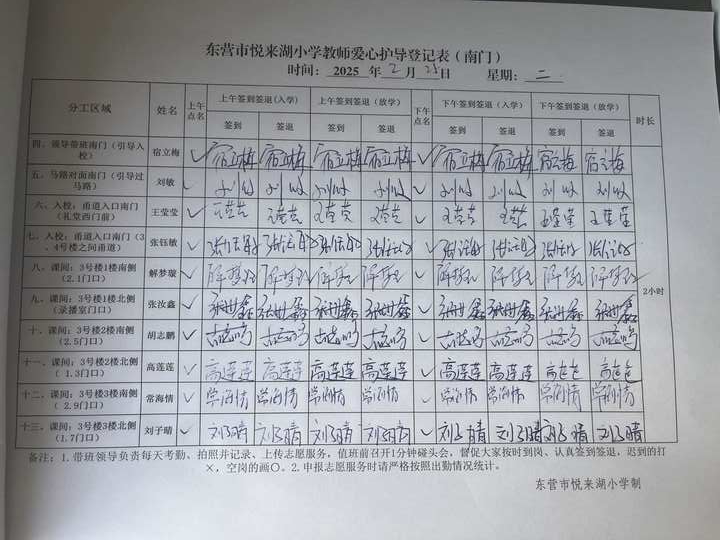 东营市悦来湖小学教师爱心护导登记表（南门）
时间： 2025 年 2 月 25 日 星期： 二
分工区域 姓名 上午点名 上午签到签退（入学） 上午签到签退（放学） 下午点名 下午签到签退（入学） 下午签到签退（放学） 时长
签到 签退 签到 签退 签到 签退 签到 签退
四、领导带班南门（引导入校） 宿立梅 ✓ 宿立梅 宿立梅 宿立梅 宿立梅 ✓ 宿立梅 宿立梅 宿立梅 宿立梅
五、马路对面南门（引导过马路） 刘敏 ✓ 刘敏 刘敏 刘敏 刘敏 ✓ 刘敏 刘敏 刘敏 刘敏
六、入校：甬道入口南门（礼堂西门前） 王莹莹 ✓ 王莹莹 王莹莹 王莹莹 王莹莹 ✓ 王莹莹 王莹莹 王莹莹 王莹莹
七、入校：甬道入口南门（3、4号楼之间甬道） 张钰敏 ✓ 张钰敏 张钰敏 张钰敏 张钰敏 ✓ 张钰敏 张钰敏 张钰敏 张钰敏
八、课间：3号楼1楼南侧（2.1门口） 解梦璇 ✓ 解梦璇 解梦璇 解梦璇 解梦璇 ✓ 解梦璇 解梦璇 解梦璇 解梦璇 2小时
九、课间：3号楼1楼北侧（录播室门口） 张汝鑫 ✓ 张汝鑫 张汝鑫 张汝鑫 张汝鑫 ✓ 张汝鑫 张汝鑫 张汝鑫 张汝鑫
十、课间：3号楼2楼南侧（2.5门口） 胡志鹏 ✓ 胡志鹏 胡志鹏 胡志鹏 胡志鹏 ✓ 胡志鹏 胡志鹏 胡志鹏 胡志鹏
十一、课间：3号楼2楼北侧（1.3门口） 高莲莲 ✓ 高莲莲 高莲莲 高莲莲 高莲莲 ✓ 高莲莲 高莲莲 高莲莲 高莲莲
十二、课间：3号楼3楼南侧（2.9门口） 常海情 ✓ 常海情 常海情 常海情 常海情 ✓ 常海情 常海情 常海情 常海情
十三、课间：3号楼3楼北侧（1.7门口） 刘子晴 ✓ 刘子晴 刘子晴 刘子晴 刘子晴 ✓ 刘子晴 刘子晴 刘子晴 刘子晴
备注：1.带班领导负责每天考勤、拍照并记录、上传志愿服务，值班前召开1分钟碰头会，督促大家按时到岗、认真签到签退，迟到的打
×，空岗的画○。2.申报志愿服务时请严格按照出勤情况统计。
东营市悦来湖小学制